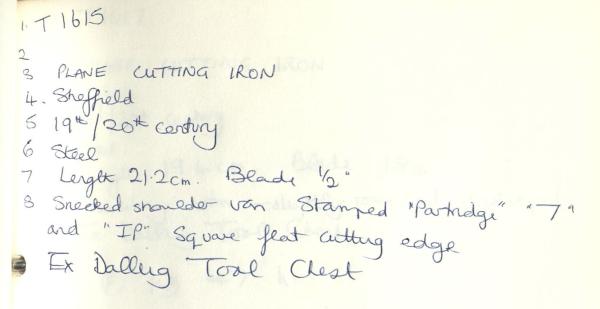 1. T 1615
2
3 PLANE CUTTING IRON
4. Sheffield
5 19th/20th century
6 Steel
7 Length 21.2cm. Blade 1/2"
8 Snecked shoulder van Stamped "Partridge" "7"
and "IP" Square flat cutting edge
Ex Dalling Tool Chest